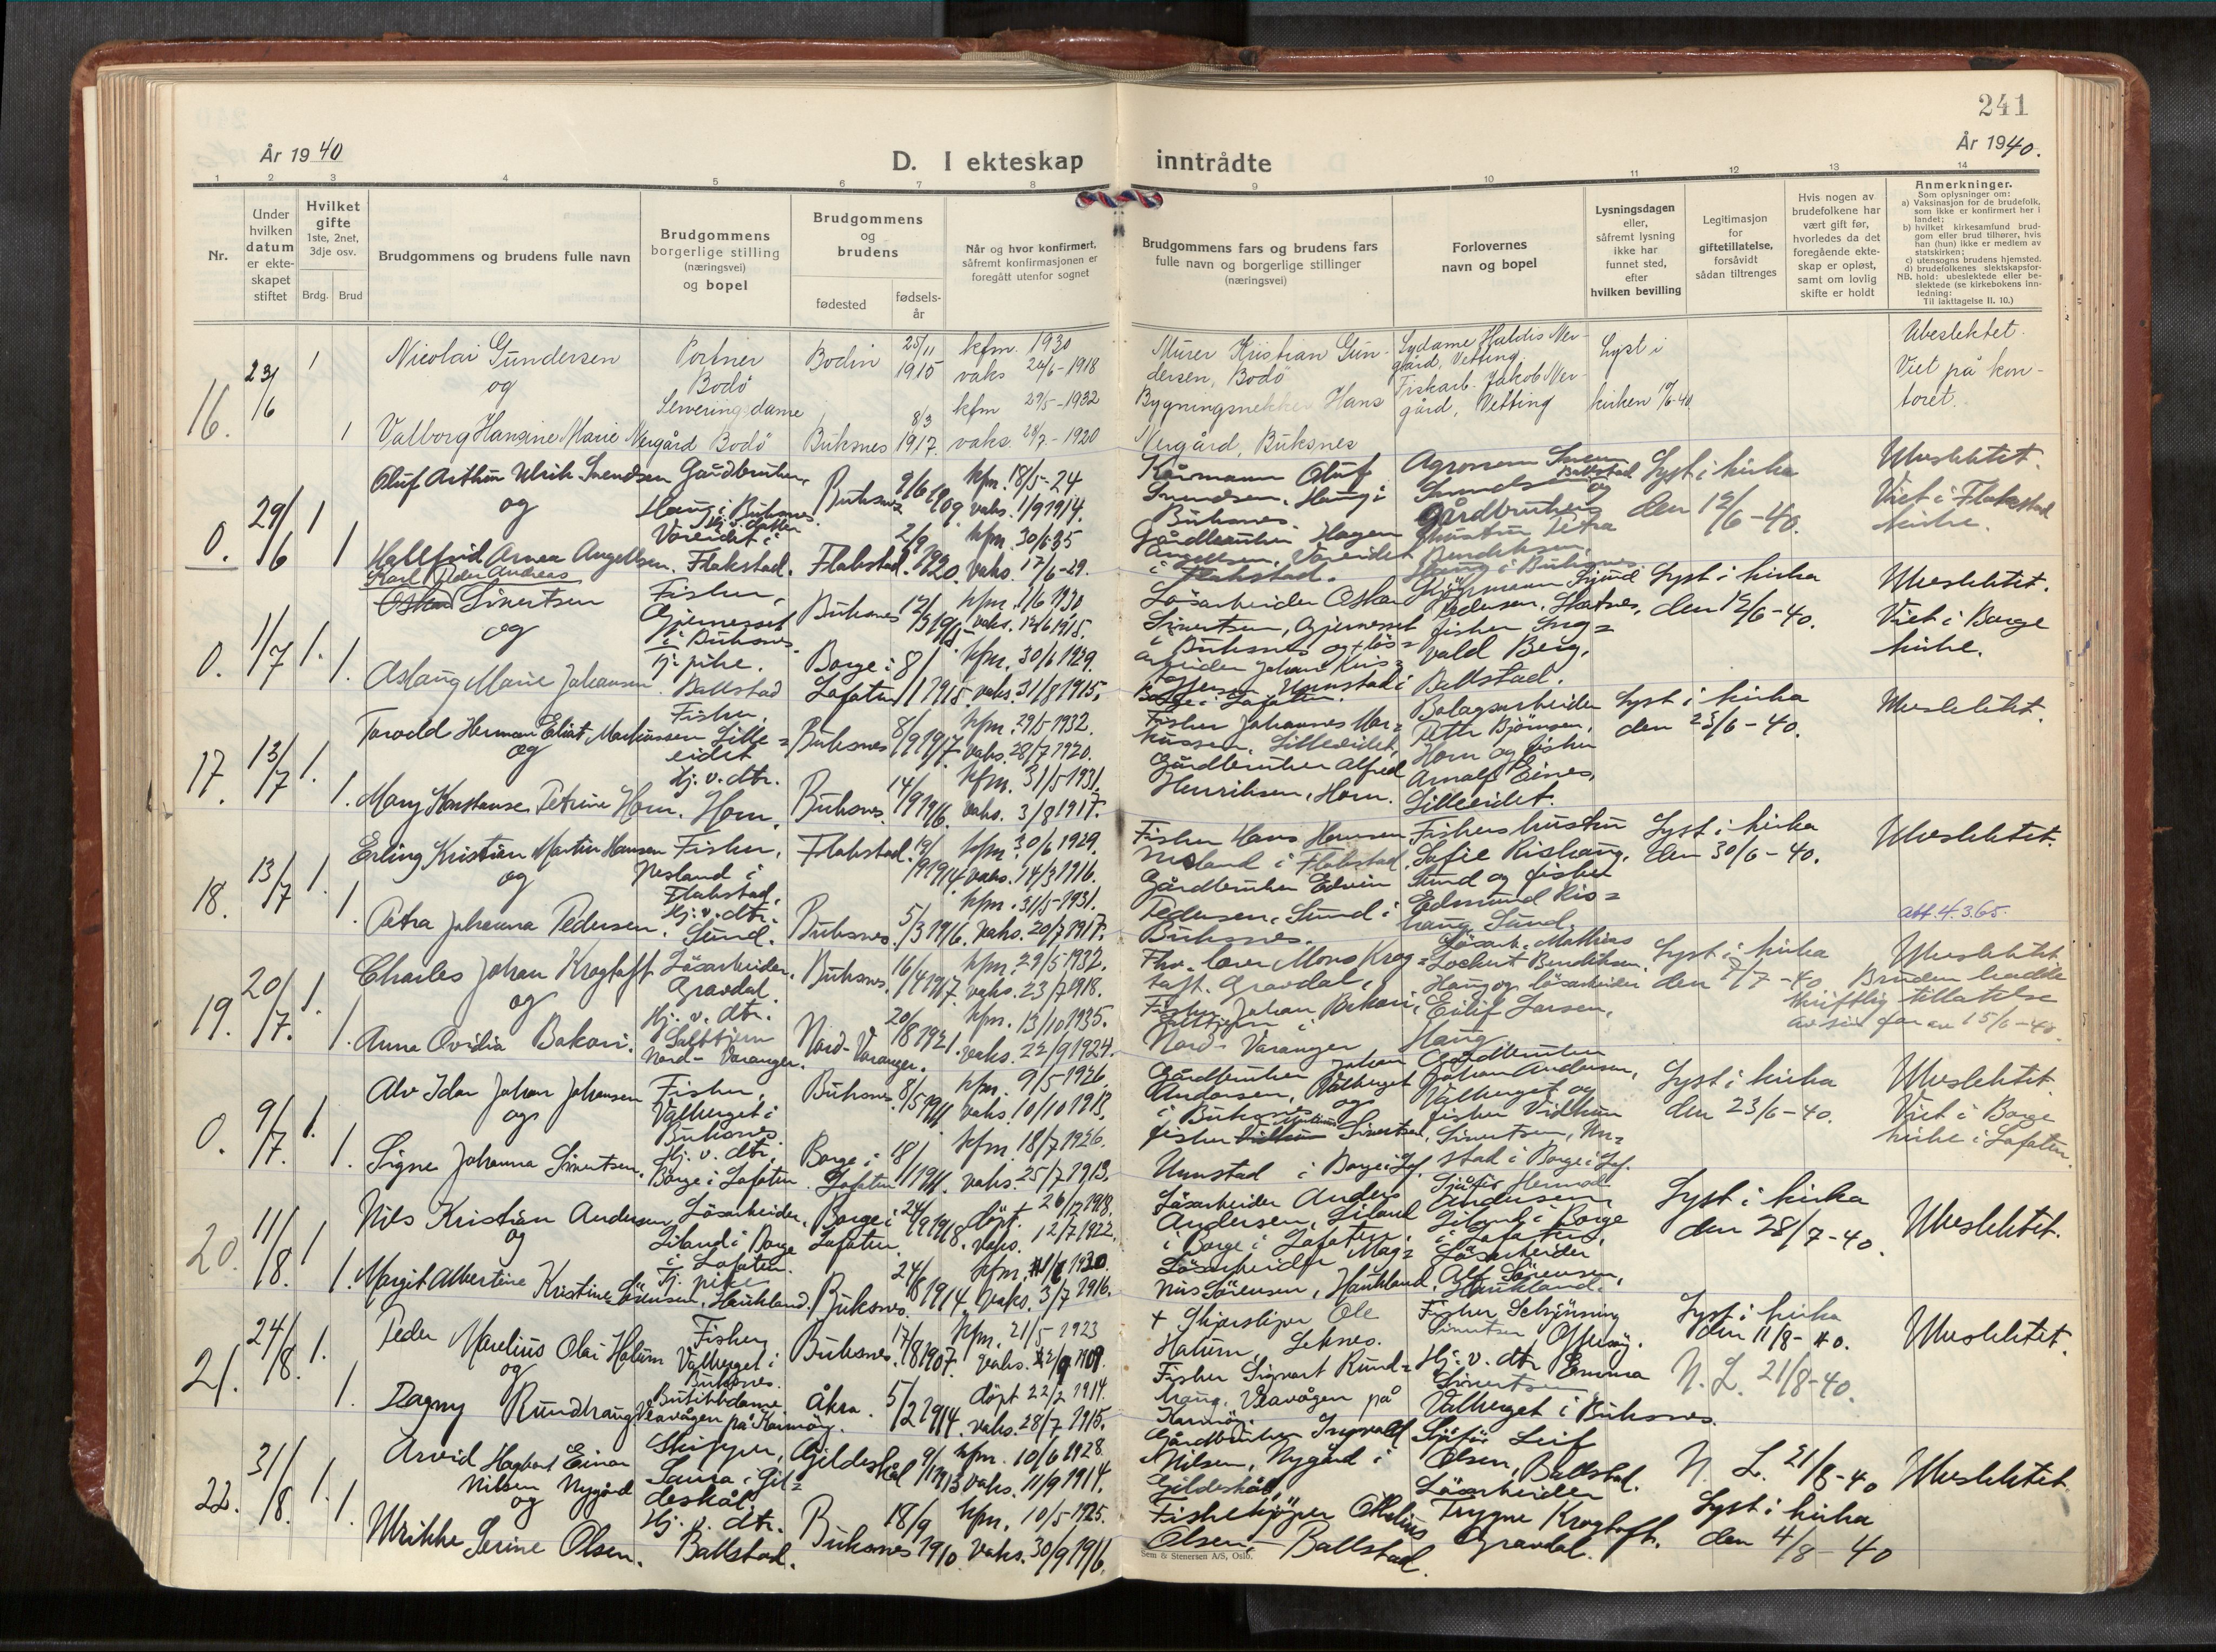 241
År 1940
År 1940.
D. I ekteskap inntrådte
1 2 3 4 5 6 7 8 9 10 11 12 13 14
Nr.
Under
hvilken
datum
er ekte-
skapet
stiftet
Hvilket
gifte
1ste, 2net,
3dje osv.
Brdg. Brud
Brudgommens og brudens fulle navn
Brudgommens
borgerlige stilling
(næringsvei)
og bopel
Brudgommens
og
brudens
fødested
fødsels-
år
Når og hvor konfirmert,
såfremt konfirmasjonen er
foregått utenfor sognet
Brudgommens fars og brudens fars
fulle navn og borgerlige stillinger
(næringsvei)
Forlovernes
navn og bopel
Lysningsdagen
eller,
såfremt lysning
ikke har
funnet sted,
efter
hvilken bevilling
Legitimasjon
for
giftetillatelse,
forsåvidt
sådan tiltrenges
Hvis nogen av
brudefolkene har
vært gift før,
hvorledes da det
foregående ekte-
skap er opløst,
samt om lovlig
skifte er holdt
Anmerkninger.
Som oplysninger om:
a) Vaksinasjon for de brudefolk,
som ikke er konfirmert her i
landet;
b) hvilket kirkesamfund brud-
gom eller brud tilhører, hvis
han (hun) ikke er medlem av
statskirken;
c) utensogns brudens hjemsted.
d) brudefolkenes slektskapsfor-
NB. hold: ubeslektede eller be-
slektede (se kirkebokens inn-
ledning:
Til iakttagelse II. 10.)
16. 23/6 1 1
Nicolai Gundersen
og
Valborg Hansine Marie Nergård
Portner
Bodø
Serveringsdame
Bodø
Bodin 25/11 1915
Buksnes 8/3 1917
kfm. 1930
vaks 24/6-1918
kfm 29/5-1932
vaks. 24/7-1920
Murer Kristian Gun-
dersen, Bodø
Bygningsnekker Hans
Nergård, Buksnes
Sydame Haldis Ner-
gård, Vetting.
Fiskarb. Jakob Ner-
gård, Vetting
Lyst i
kirken
Ubeslektet.
Viet på kon-
toret.
0. 29/6 1 1
Oluf Arthur Ulrik Svendsen
og
Hallfrid Arnea Angellsen.
Gårdbruker,
Haug i Buksnes.
Hj. v. datter
Voreidet i
Flakstad.
Buksnes 9/6 1909.
Flakstad. 1920.
kfm. 18/5-24
vaks. 1/9 1914.
kfm. 30/6 35
vaks. 17/6-29.
Kårmann Oluf
Svendsen, Haug i
Buksnes.
Gårdbruker Hagen
Angellsen, Voreidet
i Flakstad.
Agronom
Ballstad
og
Gårdbrukers
hustru Petra
Bendiksen,
Haug i Buksnes.
Lyst i kirka
den 12/6-40.
Ubeslektet.
Viet i Flakstad
kirke.
0. 1/7 1. 1.
Karl Peder Andreas
Sivertsen
og
Aslaug Marie Johansen.
Fisker,
Gjerneset
i Buksnes.
Tj. pike.
Ballstad
Buksnes
Borge i
Lofoten
kfm. 1/6 1930
kfm. 30/6 1929.
vaks. 31/8 1915.
Løsarbeider Oskar
Sivertsen, Gjerneset
i Buksnes og løs=
arbeider Johan Kris=
Unnstad i
Borge i Lofoten.
Pedersen,
fisker Ing=
vald Berg,
Ballstad.
Lyst i kirka
den 12/6-40.
Ubeslektet.
Viet i Borge
kirke.
17. 13/7 1. 1.
Torodd Herman Eliot Markussen
og
Mary Konstanse Petrine Horn.
Fisker,
Lille=
eidet
Hj. v. dtr.
Horn.
Buksnes 8/9 1917.
Buksnes. 14/9 1916.
kfm. 29/5 1932.
vaks. 28/7 1920.
kfm. 31/5 1931.
vaks. 3/8 1917.
Fisker Johannes Mar=
kussen, Lilleeidet,
Gårdbruker Alfred
Henriksen, Horn.
Bolagsarbeider
Petter Bjørnsen,
Horn og fisker
Arnolf Eines,
Lilleeidet.
Lyst i kirka
den 23/6-40.
Ubeslektet.
18. 13/7 1. 1.
Erling Kristian Martin Hansen
og
Petra Johanna Pedersen.
Fisker,
Nesland i
Flakstad,
Hj. v. dtr.
Sund.
Flakstad.
Buksnes. 5/3 1916.
kfm. 30/6 1929.
vaks. 14/3 1916.
kfm. 31/5-1931.
vaks. 20/7 1917.
Fisker Hans Hansen
Nesland i Flakstad,
Gårdbruker Edvin
Pedersen, Sund i
Buksnes.
Fiskers hustru
Sofie Rishaug,
Sund og fisker
Edmund Ris=
haug Sund.
Lyst i kirka
den 30/6-40.
Ubeslektet.
19. 20/7. 1. 1.
Charles Johan Krogtoft
og
Anna Ovidia Bakari.
Løsarbeider.
Gravdal.
Hj. v. dtr.
Nord-Varanger.
Buksnes. 16/4 1917.
Nord-Varanger. 20/8 1921.
kfm. 29/5 1932.
vaks. 23/7 1918.
kfm. 13/10 1935.
vaks. 22/9 1924.
Fhv. lærer Mons Krog=
toft. Gravdal,
Fisker Johan Bakari,
i
Nord-Varanger
Løsarb. Mathias
Lockert Bendiksen,
Haug og løsarbeider
Eilif Larsen,
Haug
Lyst i kirka
den 7/7-40
att. 4.3.65.
Ubeslektet
Bruden hadde
skriftlig tillatelse
av sin far av 15/6-40.
0. 9/7. 1. 1.
Alv Idar Johan Johansen
og
Signe Johanna Sivertsen.
Fisker,
Valberget i
Buksnes.
Hj. v. dtr.
Borge i Lofoten.
Buksnes 8/5 1911.
Borge i
Lofoten
kfm. 9/5-1926.
vaks. 10/10 1913.
kfm 18/7 1926.
vaks. 25/7 1913.
Gårdbruker Johan
Andersen, Valberget
i Buksnes og
fisker Sivertsen,
Unnstad i Borge i Lof.
Gårdbruker
Johan Andersen,
Valberget og
fisker Vidkun
Sivertsen, Un=
stad i Borge i Lof.
Lyst i kirka
den 23/6-40.
Ubeslektet.
Viet i Borge
kirke i Lofoten.
20. 11/8. 1 1.
Nils Kristian Andersen
og
Margit Albertine Kristine Sørensen,
Løsarbeider,
Liland i Borge
i Lofoten.
Tj. pike
Haukland.
Borge i
Lofoten. 24/9 1918.
Buksnes. 24/8 1914.
døpt. 26/12 1918.
vaks. 12/7 1922.
kfm. 1930.
vaks. 3/7 1916.
Løsarbeider Anders
Andersen, Liland
i Borge i Lofoten.
Løsarbeider Mag=
nus Sørensen, Haukland.
Sjåfør Hermod
Andersen,
Liland i Borge
i Lofoten,
Løsarbeider
Alf Sørensen,
Haukland.
Lyst i kirka
den 28/7-40.
Ubeslektet.
21. 24/8. 1. 1.
Peder Marelius Olai Holum
og
Dagny Rundhaug
Fisker
Valberget i
Buksnes.
Butikkdame.
Veavågen på Karmøy.
Buksnes. 17/8 1907.
Åkra. 5/2 1914.
kfm. 21/5-1923
vaks. 1909.
døpt 22/2 1914.
vaks. 28/7 1915.
+ Ole
Holum, Leknes.
Fisker Sigvart Rund=
haug, Veavågen på
Karmøy.
Fisker Schjønning
Sivertsen Offersøy.
Hj. v. dtr Emma
Sivertsen
Valberget i Buksnes.
Lyst i kirka
den 11/8-40.
N. L. 21/8-40.
Ubeslektet.
22. 31/8. 1. 1.
Arvid Hagbart Einar
Nilsen Nygård
og
Ulrikke Serine Olsen.
Skipper,
i Gil=
deskål.
Hj. v. dtr.
Ballstad.
Gildeskål 9/1 1913
Buksnes 18/9 1910.
kfm. 10/6 1928.
vaks. 11/9 1914.
kfm. 10/5-1925.
vaks. 30/9 1916.
Gårdbruker Ingvald
Nilsen, Nygård i
Gildeskål,
Fiskekjøper
Olsen, Ballstad.
Sjåfør Leif
Olsen, Ballstad.
Løsarbeider
Trygve Krogtoft.
Gravdal.
N. L. 21/8-40
Lyst i kirka
den 4/8-40
Ubeslektet.
Sem & Stenersen A/S, Oslo.